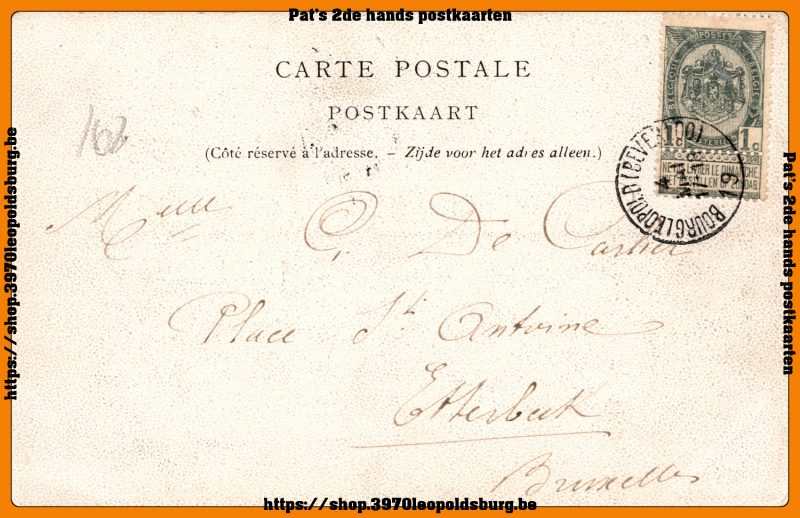 Pat's 2de hands postkaarten
CARTE POSTALE
POSTKAART
(Côté réservé à l'adresse. - Zijde voor het adres alleen.)
162
POSTES
1c 1c
BOURG LEOPOLD (BEVE
Melle C, De Cartier
Place St Antoine
Etterbeek
Bruxelles
https://shop.3970leopoldsburg.be
Pat's 2de hands postkaarten
https://shop.3970leopoldsburg.be